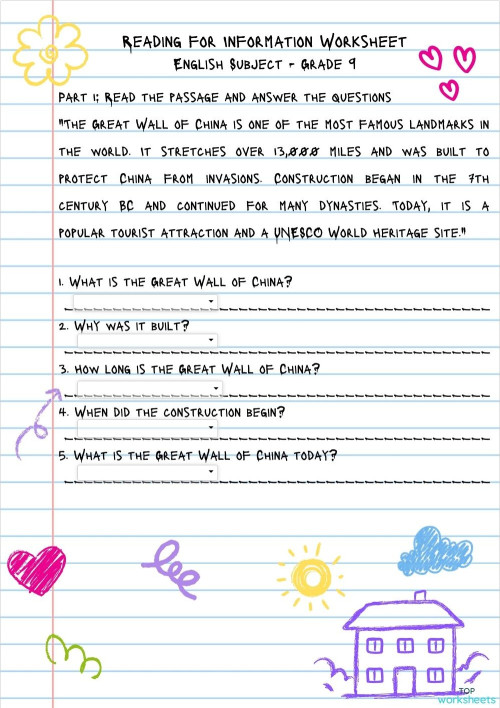 Reading for information Worksheet
English Subject - Grade 9
Part 1; Read the passage and answer the questions
"The Great Wall of China is one of the most famous landmarks in
the world. It stretches over 13,000 miles and was built to
protect China from invasions. Construction began in the 7th
century BC and continued for many dynasties. Today, it is a
popular tourist attraction and a UNESCO World Heritage Site."
1. What is the Great Wall of China?
2. Why was it built?
3. How long is the Great Wall of China?
4. When did the construction begin?
5. What is the Great Wall of China today?
TOP
worksheets